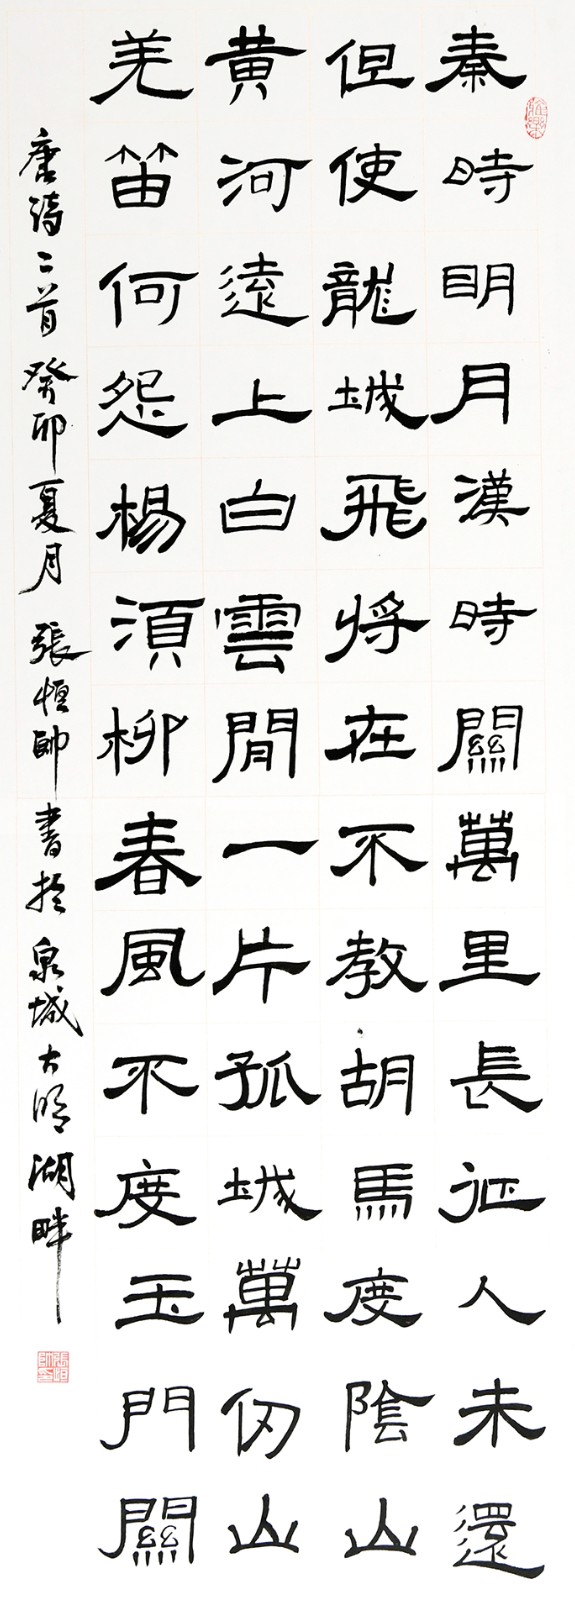 秦時明月漢時關萬里長征人未還
但使龍城飛将在不教胡馬度陰山
黄河遠上白雲閒一片孤城萬仞山
羌笛何怨楊須柳春風不度玉門關
唐詩二首 癸卯夏月 張恒帥書於泉城大明湖畔